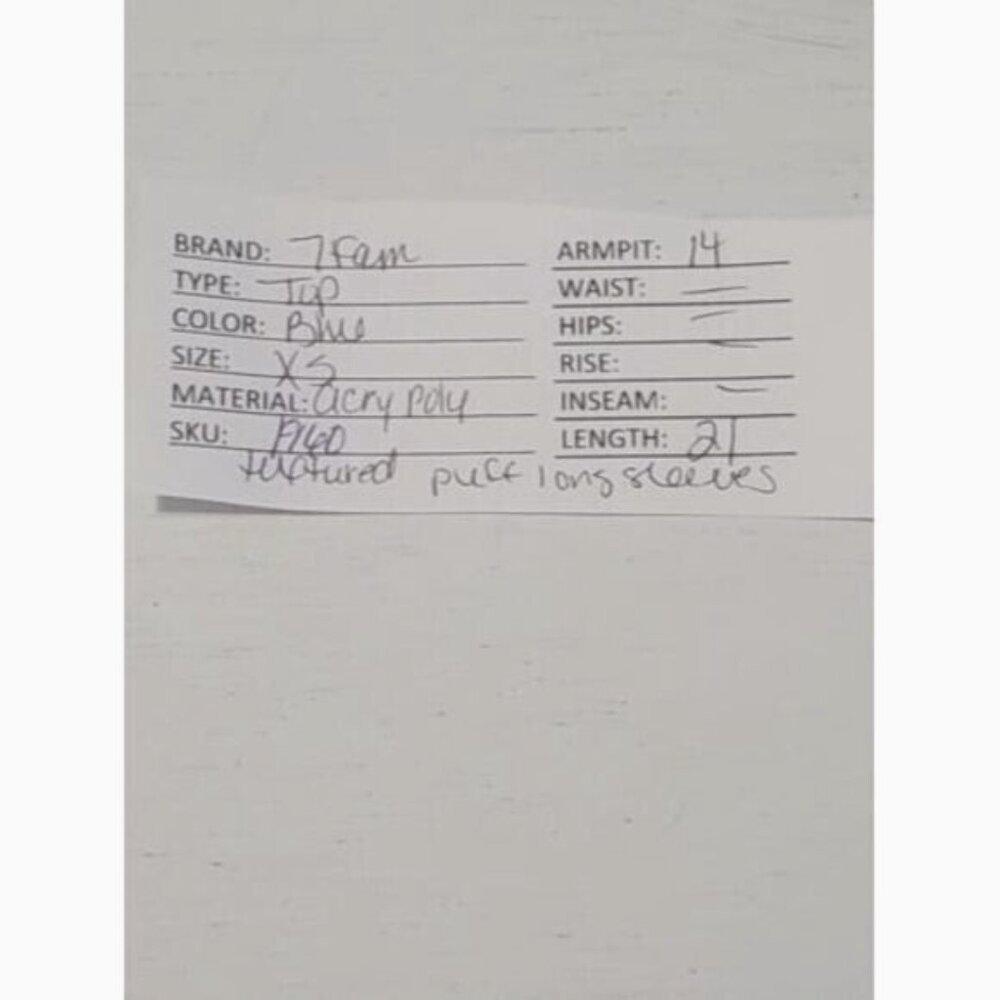 BRAND: 7 Fam
TYPE: Top
COLOR: Blue
SIZE: XS
MATERIAL: acry poly
SKU:
ARMPIT: 14
WAIST: —
HIPS: —
RISE: —
INSEAM: —
LENGTH: 21
puff long sleeves